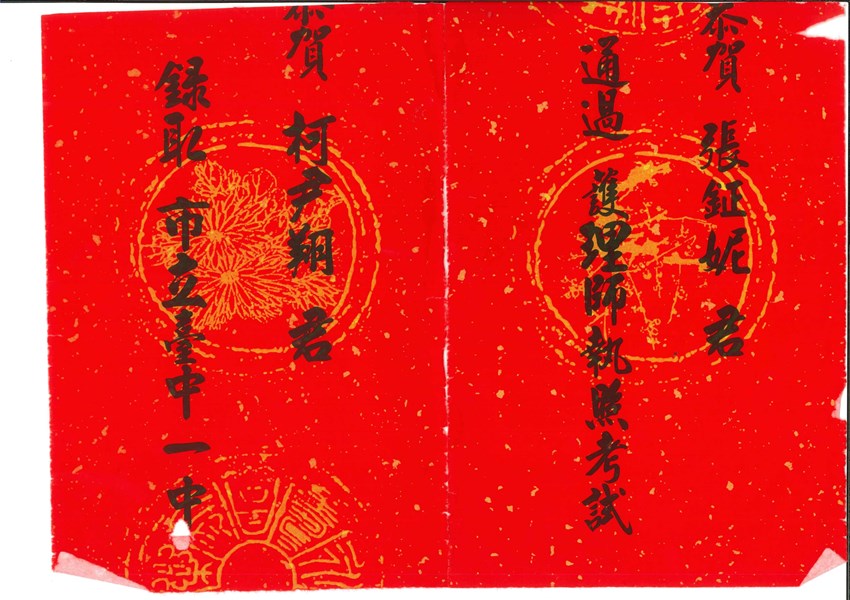 恭賀 張鉦妮 君
通過 護理師執照考試
恭賀 柯尹翔 君
錄取 市立臺中一中